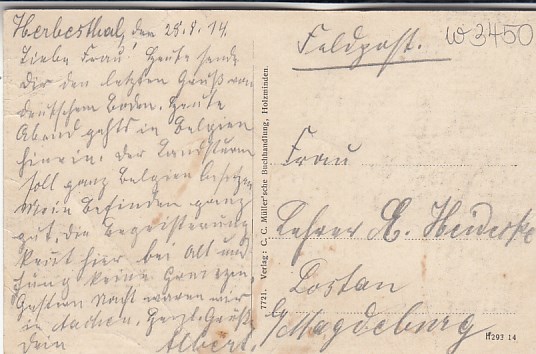 Herbesthal, den 25.8.14.
Liebe Frau! Heute sende
Dir den letzten Gruß von
deutschem Boden. Heute
Abend gehts in Belgien
hinein. Der Landsturm
soll ganz Belgien besetzen
Mein Befinden ganz
gut, die Begeisterung
kennt hier bei Alt und
Jung keine Grenzen.
Gestern Nacht waren wir
in Aachen. Herzl. Gruß
Dein Albert.
7721. Verlag: C. C. Müller'sche Buchhandlung, Holzminden.
W3450
Feldpost.
Frau
Lehrer A.
Lostau
b/Magdeburg
H293 14